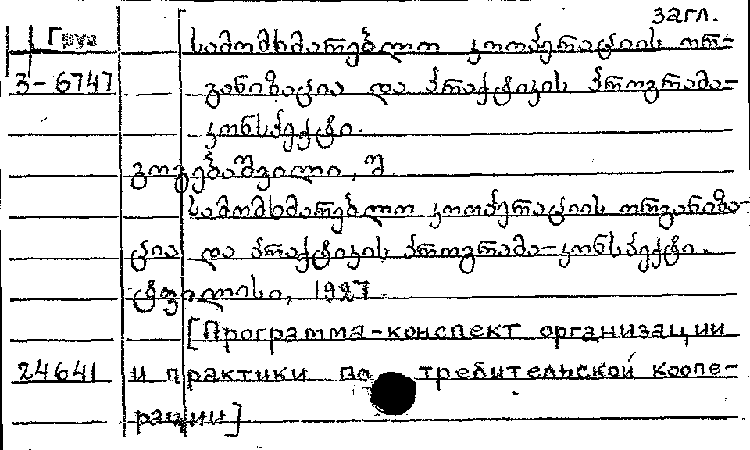 загл.
Груз
სამომხმარებლო კოოპერაციის ორ-
3-6747
განიზაცია და პრაქტიკის პროგრამა-
კონსპექტი.
გოგებაშვილი, შ.
სამომხმარებლო კოოპერაციის ორგანიზა-
ცია და პრაქტიკის პროგრამა-კონსპექტი.
ტფილისი, 1927
[Программа-конспект организации
24641 и практики по требительской коопе-
рации]